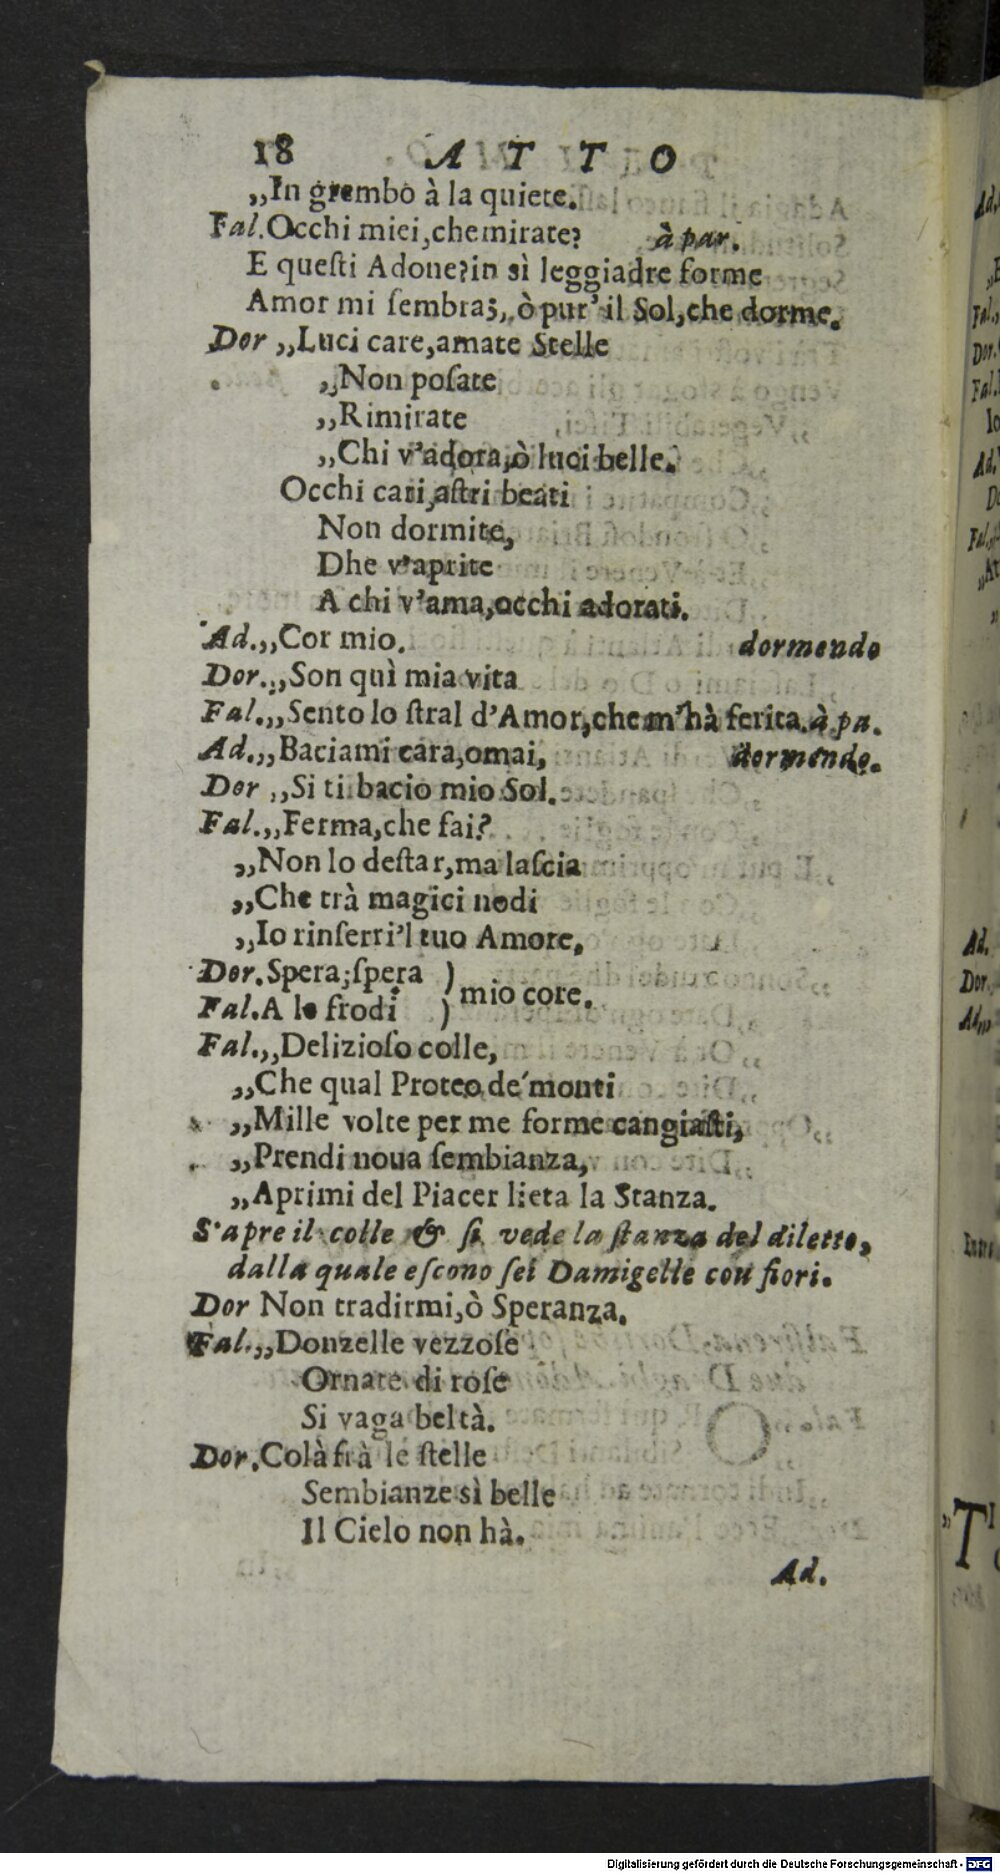 18 ATTO
„In grembo à la quiete.
Fal. Occhi miei, che mirate? à par.
E queſti Adone? in sì leggiadre forme
Amor mi ſembra; ò pur' il Sol, che dorme.
Dor „Luci care, amate Stelle
„Non poſate
„Rimirate
„Chi v'adora, ò luci belle.
Occhi cari, aſtri beati
Non dormite,
Dhe v'aprite
A chi v'ama, occhi adorati.
Ad. „Cor mio. dormendo
Dor. „Son quì mia vita
Fal. „Sento lo ſtral d'Amor, che m'hà ferita. à pa.
Ad. „Baciami cara, omai, dormendo.
Dor „Si ti bacio mio Sol.
Fal. „Ferma, che fai?
„Non lo deſtar, ma laſcia
„Che trà magici nodi
„Io rinſerri'l tuo Amore,
Dor. Spera; ſpera )
mio core.
Fal. A le frodi )
Fal. „Delizioſo colle,
„Che qual Proteo de' monti
„Mille volte per me forme cangiaſti,
„Prendi noua ſembianza,
„Aprimi del Piacer lieta la Stanza.
S'apre il colle & ſi vede la ſtanza del diletto,
dalla quale eſcono ſei Damigelle con fiori.
Dor Non tradirmi, ò Speranza.
Fal. „Donzelle vezzoſe
Ornate di roſe
Si vaga beltà.
Dor. Colà frà le ſtelle
Sembianze sì belle
Il Cielo non hà.
Ad.
Digitalisierung gefördert durch die Deutsche Forschungsgemeinschaft - DFG